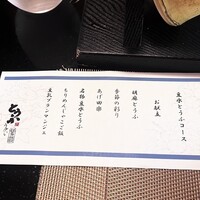 豆水とうふコース
お献立
胡麻とうふ
季節の彩り
あげ田楽
名物豆水とうふ
ちりめんじゃこご飯
豆乳ブランマンジェ